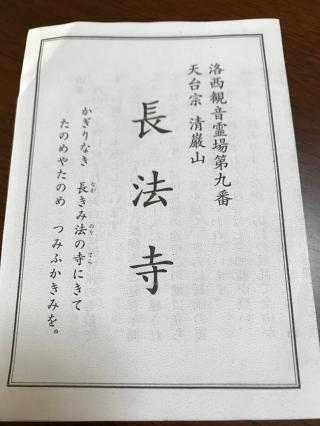 洛西観音霊場第九番
天台宗 清巌山
長法寺
かぎりなき 長きみ法の寺にきて
たのめやたのめ つみふかきみを。